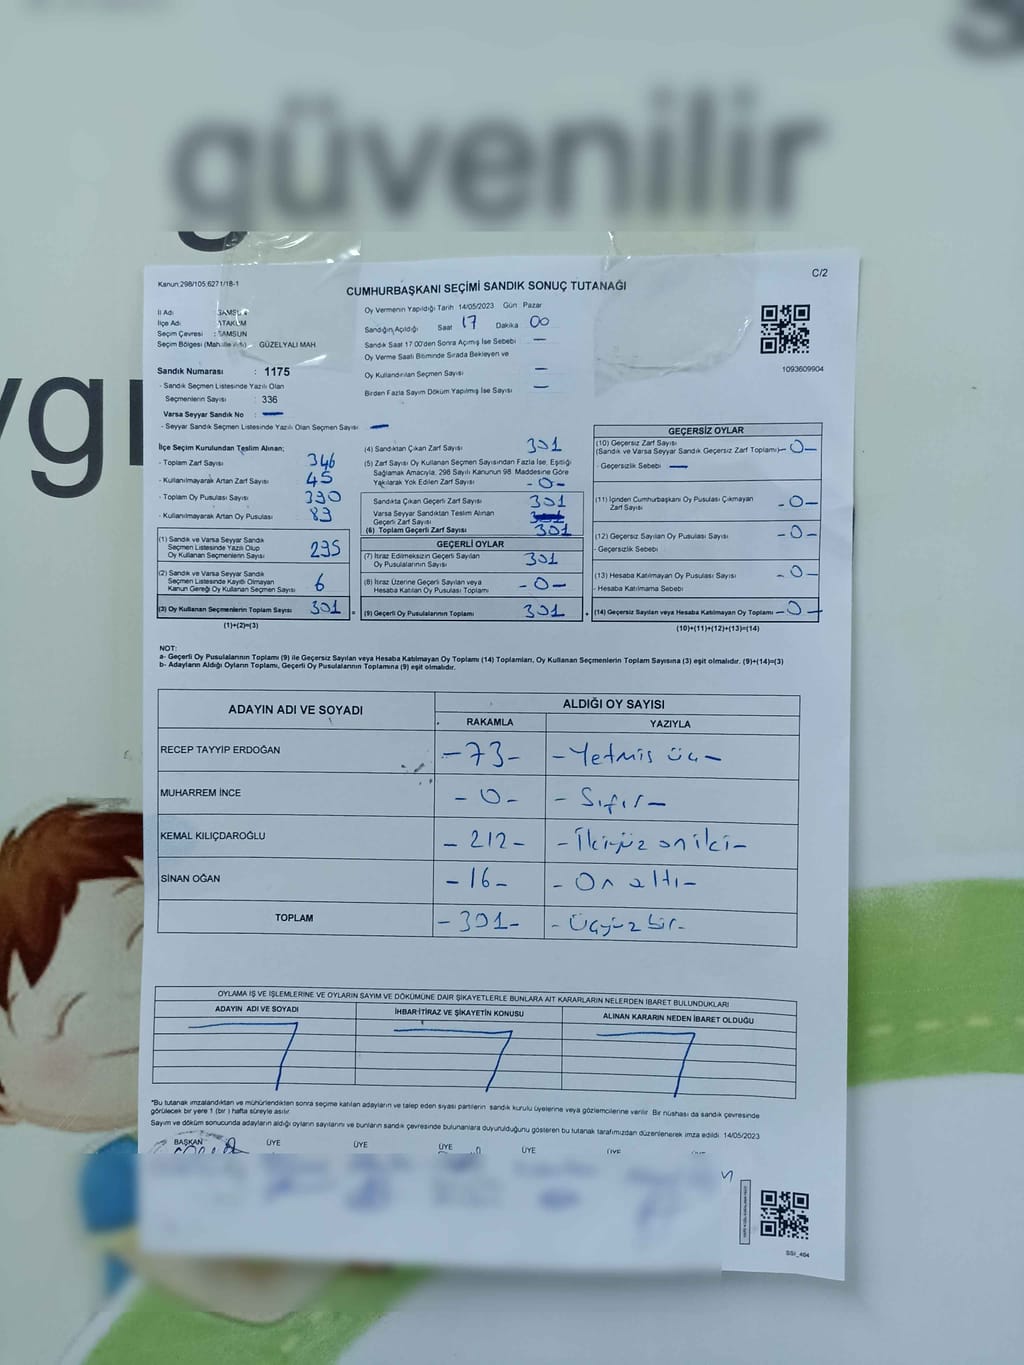 güvenilir
yg
Kanun:298/105;6271/18-1
C/2
CUMHURBAŞKANI SEÇİMİ SANDIK SONUÇ TUTANAĞI
İl Adı : SAMSUN
İlçe Adı ATAKUM
Seçim Çevresi : SAMSUN
Seçim Bölgesi GÜZELYALI MAH
Oy Vermenin Yapıldığı Tarih 14/05/2023 Gün Pazar
Sandığın Açıldığı Saat 17 Dakika 00
Sandık Saat 17.00'den Sonra Açımış İse Sebebi —
Oy Verme Saati Bitiminde Sırada Bekleyen ve
Oy Kullandırılan Seçmen Sayısı —
Birden Fazla Sayım Döküm Yapılmış İse Sayısı —
1093609904
Sandık Numarası : 1175
- Sandık Seçmen Listesinde Yazılı Olan
Seçmenlerin Sayısı : 336
Varsa Seyyar Sandık No : —
- Seyyar Sandık Seçmen Listesinde Yazılı Olan Seçmen Sayısı —
İlçe Seçim Kurulundan Teslim Alınan;
- Toplam Zarf Sayısı 346
- Kullanılmayarak Artan Zarf Sayısı 45
- Toplam Oy Pusulası Sayısı 390
- Kullanılmayarak Artan Oy Pusulası 89
(1) Sandık ve Varsa Seyyar Sandık
Seçmen Listesinde Yazılı Olup
Oy Kullanan Seçmenlerin Sayısı 295
(2) Sandık ve Varsa Seyyar Sandık
Seçmen Listesinde Kayıtlı Olmayan
Kanun Gereği Oy Kullanan Seçmen Sayısı 6
(3) Oy Kullanan Seçmenlerin Toplam Sayısı 301 =
(1)+(2)=(3)
(4) Sandıktan Çıkan Zarf Sayısı 301
(5) Zarf Sayısı Oy Kullanan Seçmen Sayısından Fazla İse, Eşitliği
Sağlamak Amacıyla, 298 Sayılı Kanunun 98. Maddesine Göre
Yakılarak Yok Edilen Zarf Sayısı -0-
Sandıkta Çıkan Geçerli Zarf Sayısı 301
Varsa Seyyar Sandıktan Teslim Alınan
Geçerli Zarf Sayısı
(6) Toplam Geçerli Zarf Sayısı 301
GEÇERLİ OYLAR
(7) İtiraz Edilmeksizin Geçerli Sayılan
Oy Pusulalarının Sayısı 301
(8) İtiraz Üzerine Geçerli Sayılan veya
Hesaba Katılan Oy Pusulası Toplamı -0-
(9) Geçerli Oy Pusulalarının Toplamı 301 +
GEÇERSİZ OYLAR
(10) Geçersiz Zarf Sayısı
(Sandık ve Varsa Seyyar Sandık Geçersiz Zarf Toplamı) -0-
- Geçersizlik Sebebi —
(11) İçinden Cumhurbaşkanı Oy Pusulası Çıkmayan
Zarf Sayısı -0-
(12) Geçersiz Sayılan Oy Pusulası Sayısı -0-
- Geçersizlik Sebebi
(13) Hesaba Katılmayan Oy Pusulası Sayısı -0-
- Hesaba Katılmama Sebebi
(14) Geçersiz Sayılan veya Hesaba Katılmayan Oy Toplamı -0-
(10)+(11)+(12)+(13)=(14)
NOT:
a- Geçerli Oy Pusulalarının Toplamı (9) ile Geçersiz Sayılan veya Hesaba Katılmayan Oy Toplamı (14) Toplamları, Oy Kullanan Seçmenlerin Toplam Sayısına (3) eşit olmalıdır. (9)+(14)=(3)
b- Adayların Aldığı Oyların Toplamı, Geçerli Oy Pusulalarının Toplamına (9) eşit olmalıdır.
ADAYIN ADI VE SOYADI ALDIĞI OY SAYISI
RAKAMLA YAZIYLA
RECEP TAYYİP ERDOĞAN -73- -Yetmiş üç-
MUHARREM İNCE -0- -Sıfır-
KEMAL KILIÇDAROĞLU -212- -İkiyüz oniki-
SİNAN OĞAN -16- -On altı-
TOPLAM -301- -Üçyüz bir-
OYLAMA İŞ VE İŞLEMLERİNE VE OYLARIN SAYIM VE DÖKÜMÜNE DAİR ŞİKAYETLERLE BUNLARA AİT KARARLARIN NELERDEN İBARET BULUNDUKLARI
ADAYIN ADI VE SOYADI İHBAR-İTİRAZ VE ŞİKAYETİN KONUSU ALINAN KARARIN NEDEN İBARET OLDUĞU
*Bu tutanak imzalandıktan ve mühürlendikten sonra seçime katılan adayların ve talep eden siyasi partilerin sandık kurulu üyelerine veya gözlemcilerine verilir. Bir nüshası da sandık çevresinde
görülecek bir yere 1 (bir) hafta süreyle asılır.
Sayım ve döküm sonucunda adayların aldığı oyların sayılarını ve bunların sandık çevresinde bulunanlara duyurulduğunu gösteren bu tutanak tarafımızdan düzenlenerek imza edildi. 14/05/2023
BAŞKAN ÜYE ÜYE ÜYE ÜYE ÜYE ÜYE
SSI_464